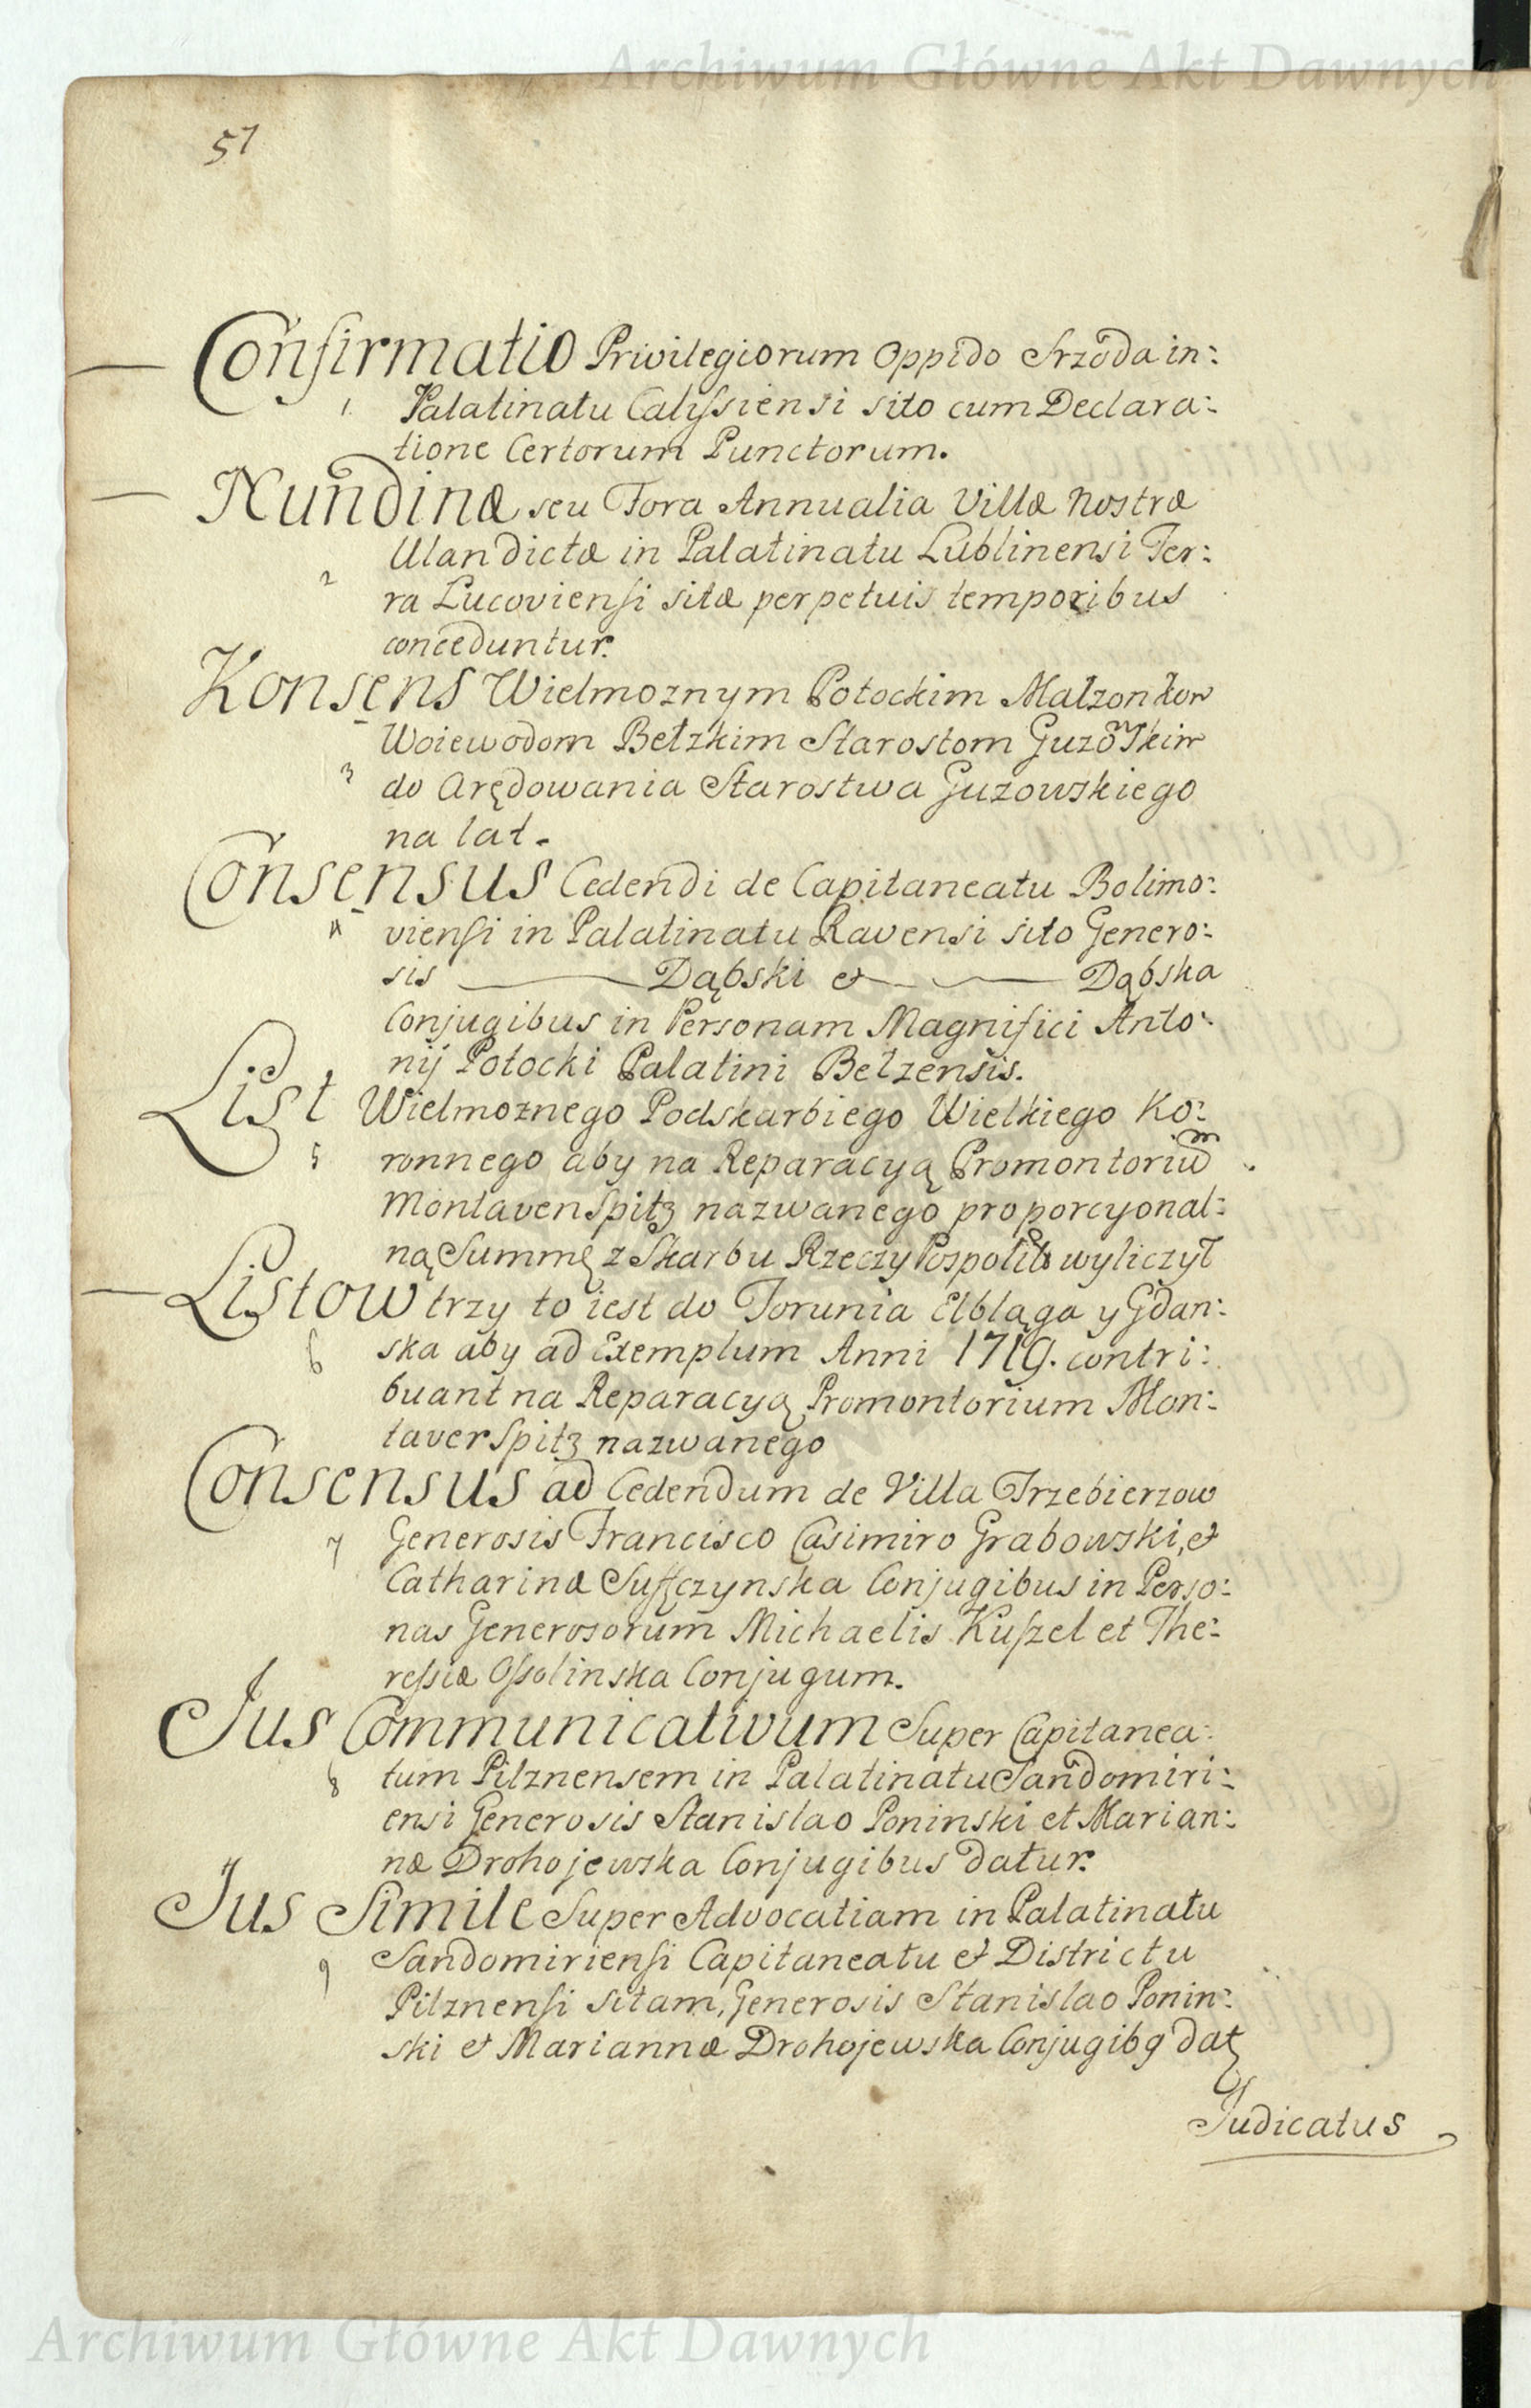 Archiwum Główne Akt Dawnych
57
Confirmatio Privilegiorum Oppido Srzoda in:
1. Palatinatu Calyssiensi sito cum Declara:
tione Certorum Punctorum.
Nundinæ seu Fora Annualia Villæ Nostræ
Ulan dictæ in Palatinatu Lublinensi Ter:
2 ra Lucoviensi sitæ perpetuis temporibus
conceduntur.
Konsens Wielmoznym Potockim Małzonkow
Woiewodom Bełzkim Starostom Guzowskim
3 do Arędowania Starostwa Guzowskiego
na lat.
Consensus Cedendi de Capitaneatu Bolimo:
4 viensi in Palatinatu Ravensi sito Genero:
sis Dąbski et Dąbska
Conjugibus in Personam Magnifici Anto:
nij Potocki Palatini Belzensis.
List Wielmoznego Podskarbiego Wielkiego Ko:
5 ronnego aby na Reparacyą Promontorium
Montavenspitz nazwanego proporcyonal:
ną Summę z Skarbu Rzeczy Pospolite wyliczył
Listow trzy to iest do Torunia Elbląga y Gdan:
6 ska aby ad Exemplum Anni 1719. contri:
buant na Reparacyą Promontorium Mon:
taverspitz nazwanego
Consensus ad Cedendum de Villa Trzebierzow
7 Generosis Francisco Casimiro Grabowski, et
Catharinæ Suffczynska Conjugibus in Perso:
nas Generosorum Michaelis Kuszel et The:
ressiæ Ossolinska Conjugum.
Jus Communicativum Super Capitanea:
8 tum Pilznensem in Palatinatu Sandomiri:
ensi Generosis Stanislao Poninski et Marian:
næ Drohojewska Conjugibus datur.
Jus Simile Super Advocatiam in Palatinatu
9 Sandomiriensi Capitaneatu et Districtu
Pilznensi sitam, Generosis Stanislao Ponin:
ski et Mariannæ Drohojewska Conjugibq dat
Judicatus
Archiwum Główne Akt Dawnych